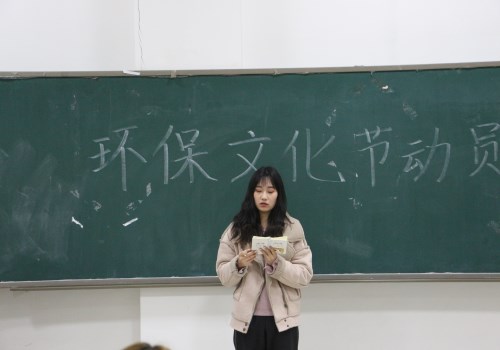 环保文化节动员